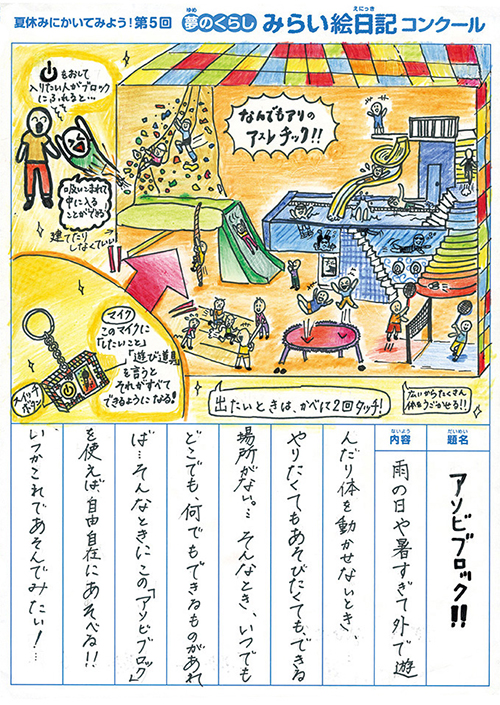 夏休みにかいてみよう!第5回 夢のくらし みらい絵日記コンクール
ゆめ
えにっき
⏻をおして
入りたい人がブロック
にふれると…
吸いこまれて
中に入る
ことができる
建てたり
しなくていい!!
なんでもアリの
アスレチック!!
マイク
このマイクに
「したいこと」
「遊び道具」
を言うと
それがすべて
できるようになる!
スイッチ
ボタン
出たいときは、かべに2回タッチ!
広いからたくさん
体をうごかせる!!
だいめい
題名
アソビブロック!!
ないよう
内容
雨の日や暑すぎて外で遊
んだり体を動かせないとき、
やりたくてもあそびたくても、できる
場所がない。… そんなとき、いつでも
どこでも、何でもできるものがあれ
ば…そんなときにこの「アソビブロック」
を使えば、自由自在にあそべる!!
いつかこれであそんでみたい!…